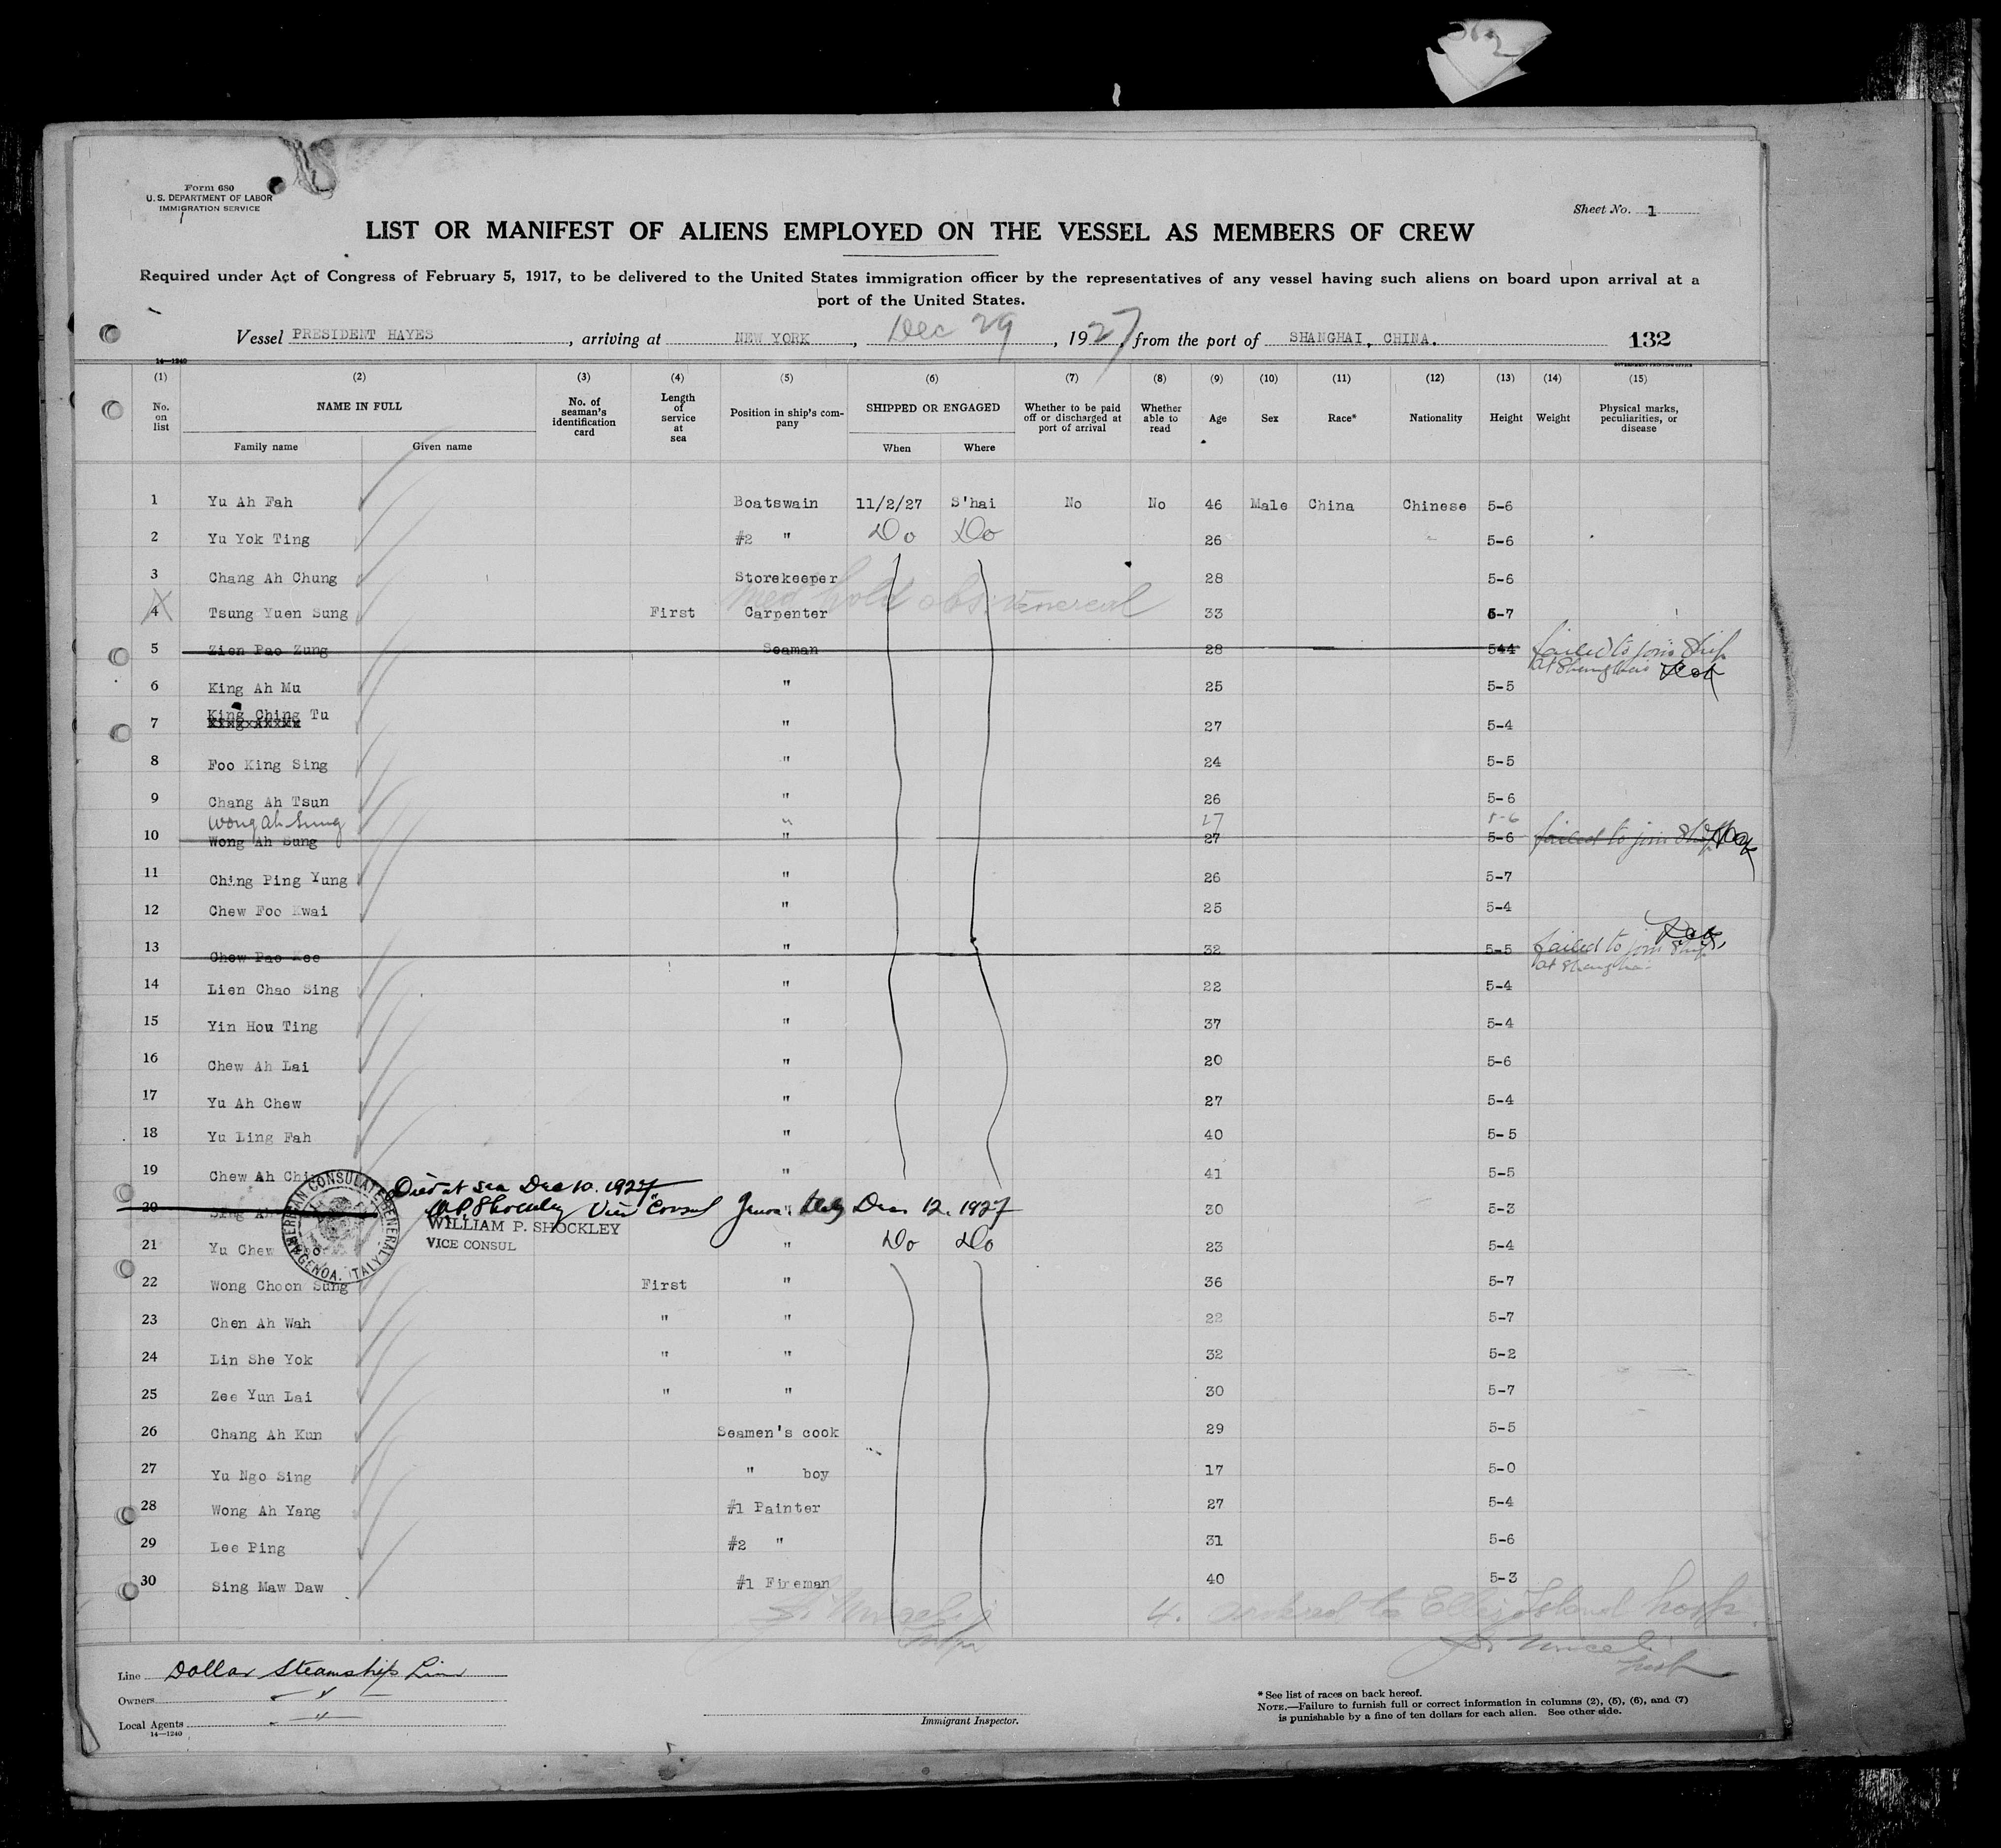 562
Form 680
U. S. DEPARTMENT OF LABOR
IMMIGRATION SERVICE
Sheet No. 1
LIST OR MANIFEST OF ALIENS EMPLOYED ON THE VESSEL AS MEMBERS OF CREW
Required under Act of Congress of February 5, 1917, to be delivered to the United States immigration officer by the representatives of any vessel having such aliens on board upon arrival at a
port of the United States.
Vessel PRESIDENT HAYES, arriving at NEW YORK, Dec 29, 1927, from the port of SHANGHAI, CHINA. 132
14—1240 GOVERNMENT PRINTING OFFICE
(1) (2) (3) (4) (5) (6) (7) (8) (9) (10) (11) (12) (13) (14) (15)
No. on list NAME IN FULL Family name Given name No. of seaman's identification card Length of service at sea Position in ship's company SHIPPED OR ENGAGED When Where Whether to be paid off or discharged at port of arrival Whether able to read Age Sex Race* Nationality Height Weight Physical marks, peculiarities, or disease
1 Yu Ah Fah Boatswain 11/2/27 S'hai No No 46 Male China Chinese 5-6
2 Yu Yok Ting #2 " Do Do 26 " 5-6
3 Chang Ah Chung Storekeeper 28 5-6
Med hold obs. venereal
4 Tsung Yuen Sung First Carpenter 33 5-7
5 Zien Pao Zung Seaman 28 544 failed to join Ship
at Shanghai
6 King Ah Mu " 25 5-5
7 King Ching Tu " 27 5-4
8 Foo King Sing " 24 5-5
9 Chang Ah Tsun " 26 5-6
Wong Ah Sung " 27 5-6
10 Wong Ah Sung " 27 5-6 failed to join Ship
11 Ching Ping Yung " 26 5-7
12 Chew Foo Kwai " 25 5-4
13 Chew Pao Kee " 32 5-5 failed to join Ship
at Shanghai
14 Lien Chao Sing " 22 5-4
15 Yin Hou Ting " 37 5-4
16 Chew Ah Lai " 20 5-6
17 Yu Ah Chew " 27 5-4
18 Yu Ling Fah " 40 5-5
19 Chew Ah " 41 5-5
Died at sea Dec 10. 1927
20 W.P. Shockley Vice Consul Genoa, Italy Dec. 12. 1927 30 5-3
WILLIAM P. SHOCKLEY
VICE CONSUL
AMERICAN CONSULATE GENERAL GENOA, ITALY
21 Yu Chew " Do Do 23 5-4
22 Wong Choon Sung First " 36 5-7
23 Chen Ah Wah " " 22 5-7
24 Lin She Yok " " 32 5-2
25 Zee Yun Lai " " 30 5-7
26 Chang Ah Kun Seamen's cook 29 5-5
27 Yu Ngo Sing " boy 17 5-0
28 Wong Ah Yang #1 Painter 27 5-4
29 Lee Ping #2 " 31 5-6
30 Sing Maw Daw #1 Fireman 40 5-3
4. ordered to Ellis Island hosp.
Line Dollar Steamship Line
Owners " 
Local Agents "
14—1240
Immigrant Inspector.
* See list of races on back hereof.
NOTE.—Failure to furnish full or correct information in columns (2), (5), (6), and (7)
is punishable by a fine of ten dollars for each alien. See other side.